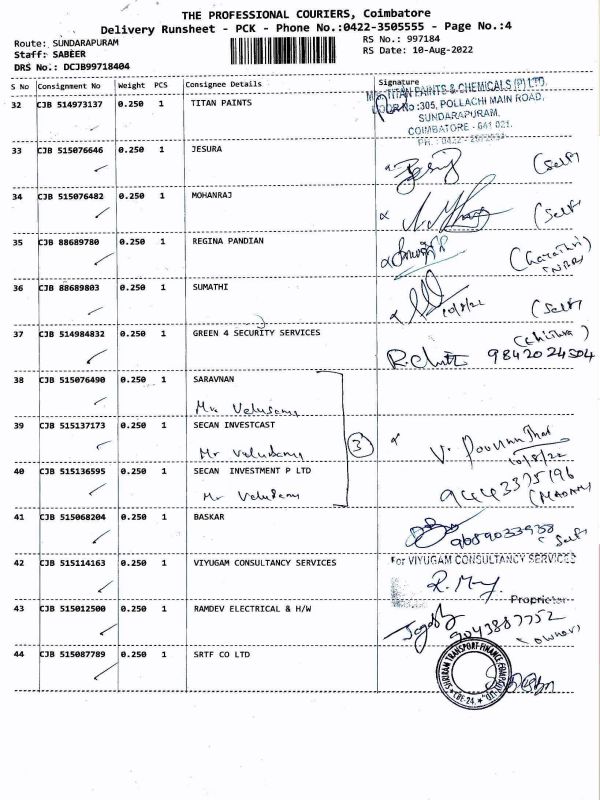 THE PROFESSIONAL COURIERS, Coimbatore
Delivery Runsheet - PCK - Phone No.:0422-3505555 - Page No.:4
Route: SUNDARAPURAM
RS No.: 997184
Staff: SABEER
RS Date: 10-Aug-2022
DRS No.: DCJB99718404
S No Consignment No Weight PCS Consignee Details Signature
32 CJB 514973137 0.250 1 TITAN PAINTS
TITAN PAINTS & CHEMICALS (P) LTD,
DOOR No:305, POLLACHI MAIN ROAD,
SUNDARAPURAM,
COIMBATORE - 641 021.
33 CJB 515076646 0.250 1 JESURA
(Self)
34 CJB 515076482 0.250 1 MOHANRAJ
(Self)
35 CJB 88689780 0.250 1 REGINA PANDIAN
36 CJB 88689803 0.250 1 SUMATHI
10/8/22 (Self)
37 CJB 514984832 0.250 1 GREEN 4 SECURITY SERVICES
9842024504
38 CJB 515076490 0.250 1 SARAVNAN
Mr Velusamy
39 CJB 515137173 0.250 1 SECAN INVESTCAST
Mr Velusamy
3
10/8/22
40 CJB 515136595 0.250 1 SECAN INVESTMENT P LTD
Mr Velusamy
9443375196
(MADAM)
41 CJB 515068204 0.250 1 BASKAR
(Self)
42 CJB 515114163 0.250 1 VIYUGAM CONSULTANCY SERVICES
For VIYUGAM CONSULTANCY SERVICES
Proprietor
43 CJB 515012500 0.250 1 RAMDEV ELECTRICAL & H/W
9043887752
(owner)
44 CJB 515087789 0.250 1 SRTF CO LTD
SHRIRAM TRANSPORT FINANCE COMPANY LTD.
CBE-24.